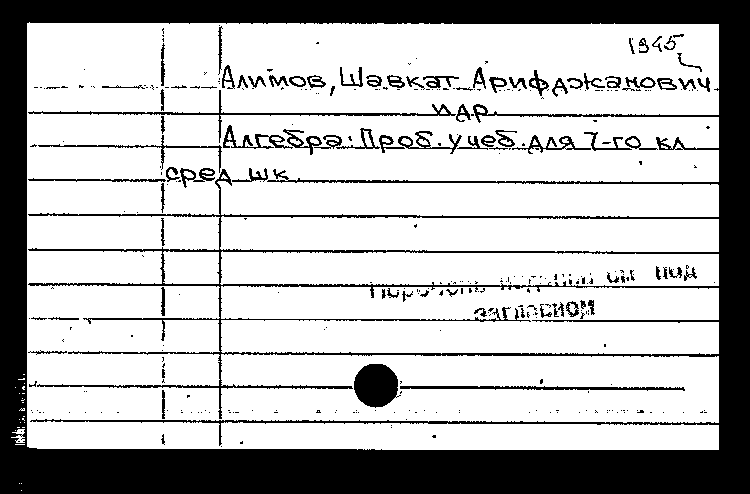 1945
Алимов, Шавкат Арифджанович
и др.
Алгебра: Проб. учеб. для 7-го кл
сред шк.
Перечень изданий см под
заглавием